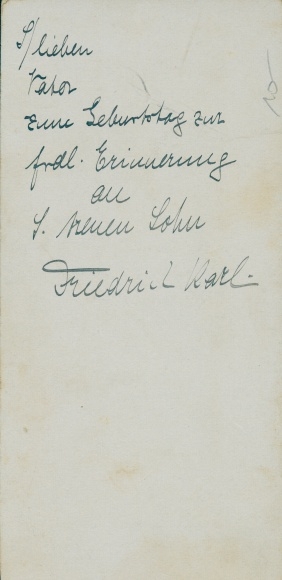 S/ lieben
Vater
zum Geburtstag zur
frdl. Erinnerung
an
S. treuen Sohn
Friedrich Karl.